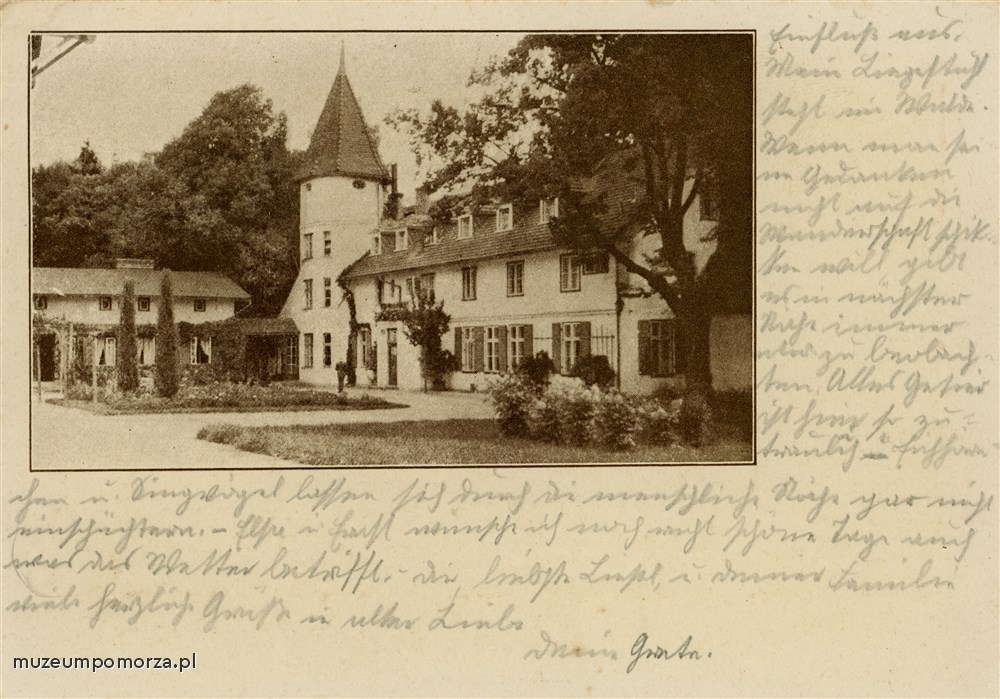 Einfluß aus.
Mein Liegestuhl
steht im Walde.
Wenn man sei
ne Gedanken
nicht auf die
Wanderschaft schik-
ken will, gibt
es in nächster
Nähe immer
was zu beobach-
ten. Alles Getier
ist hier so zu-
traulich – Eichhörn-
chen u. Singvögel lassen sich durch die menschliche Nähe gar nicht
einschüchtern. – Elsa u. wünsche ich noch recht schöne Tage auch
was das Wetter betrifft. – Dir, liebste Liesel, u. Deiner Familie
viele herzliche Grüße in alter Liebe
Deine Grete.
muzeumpomorza.pl